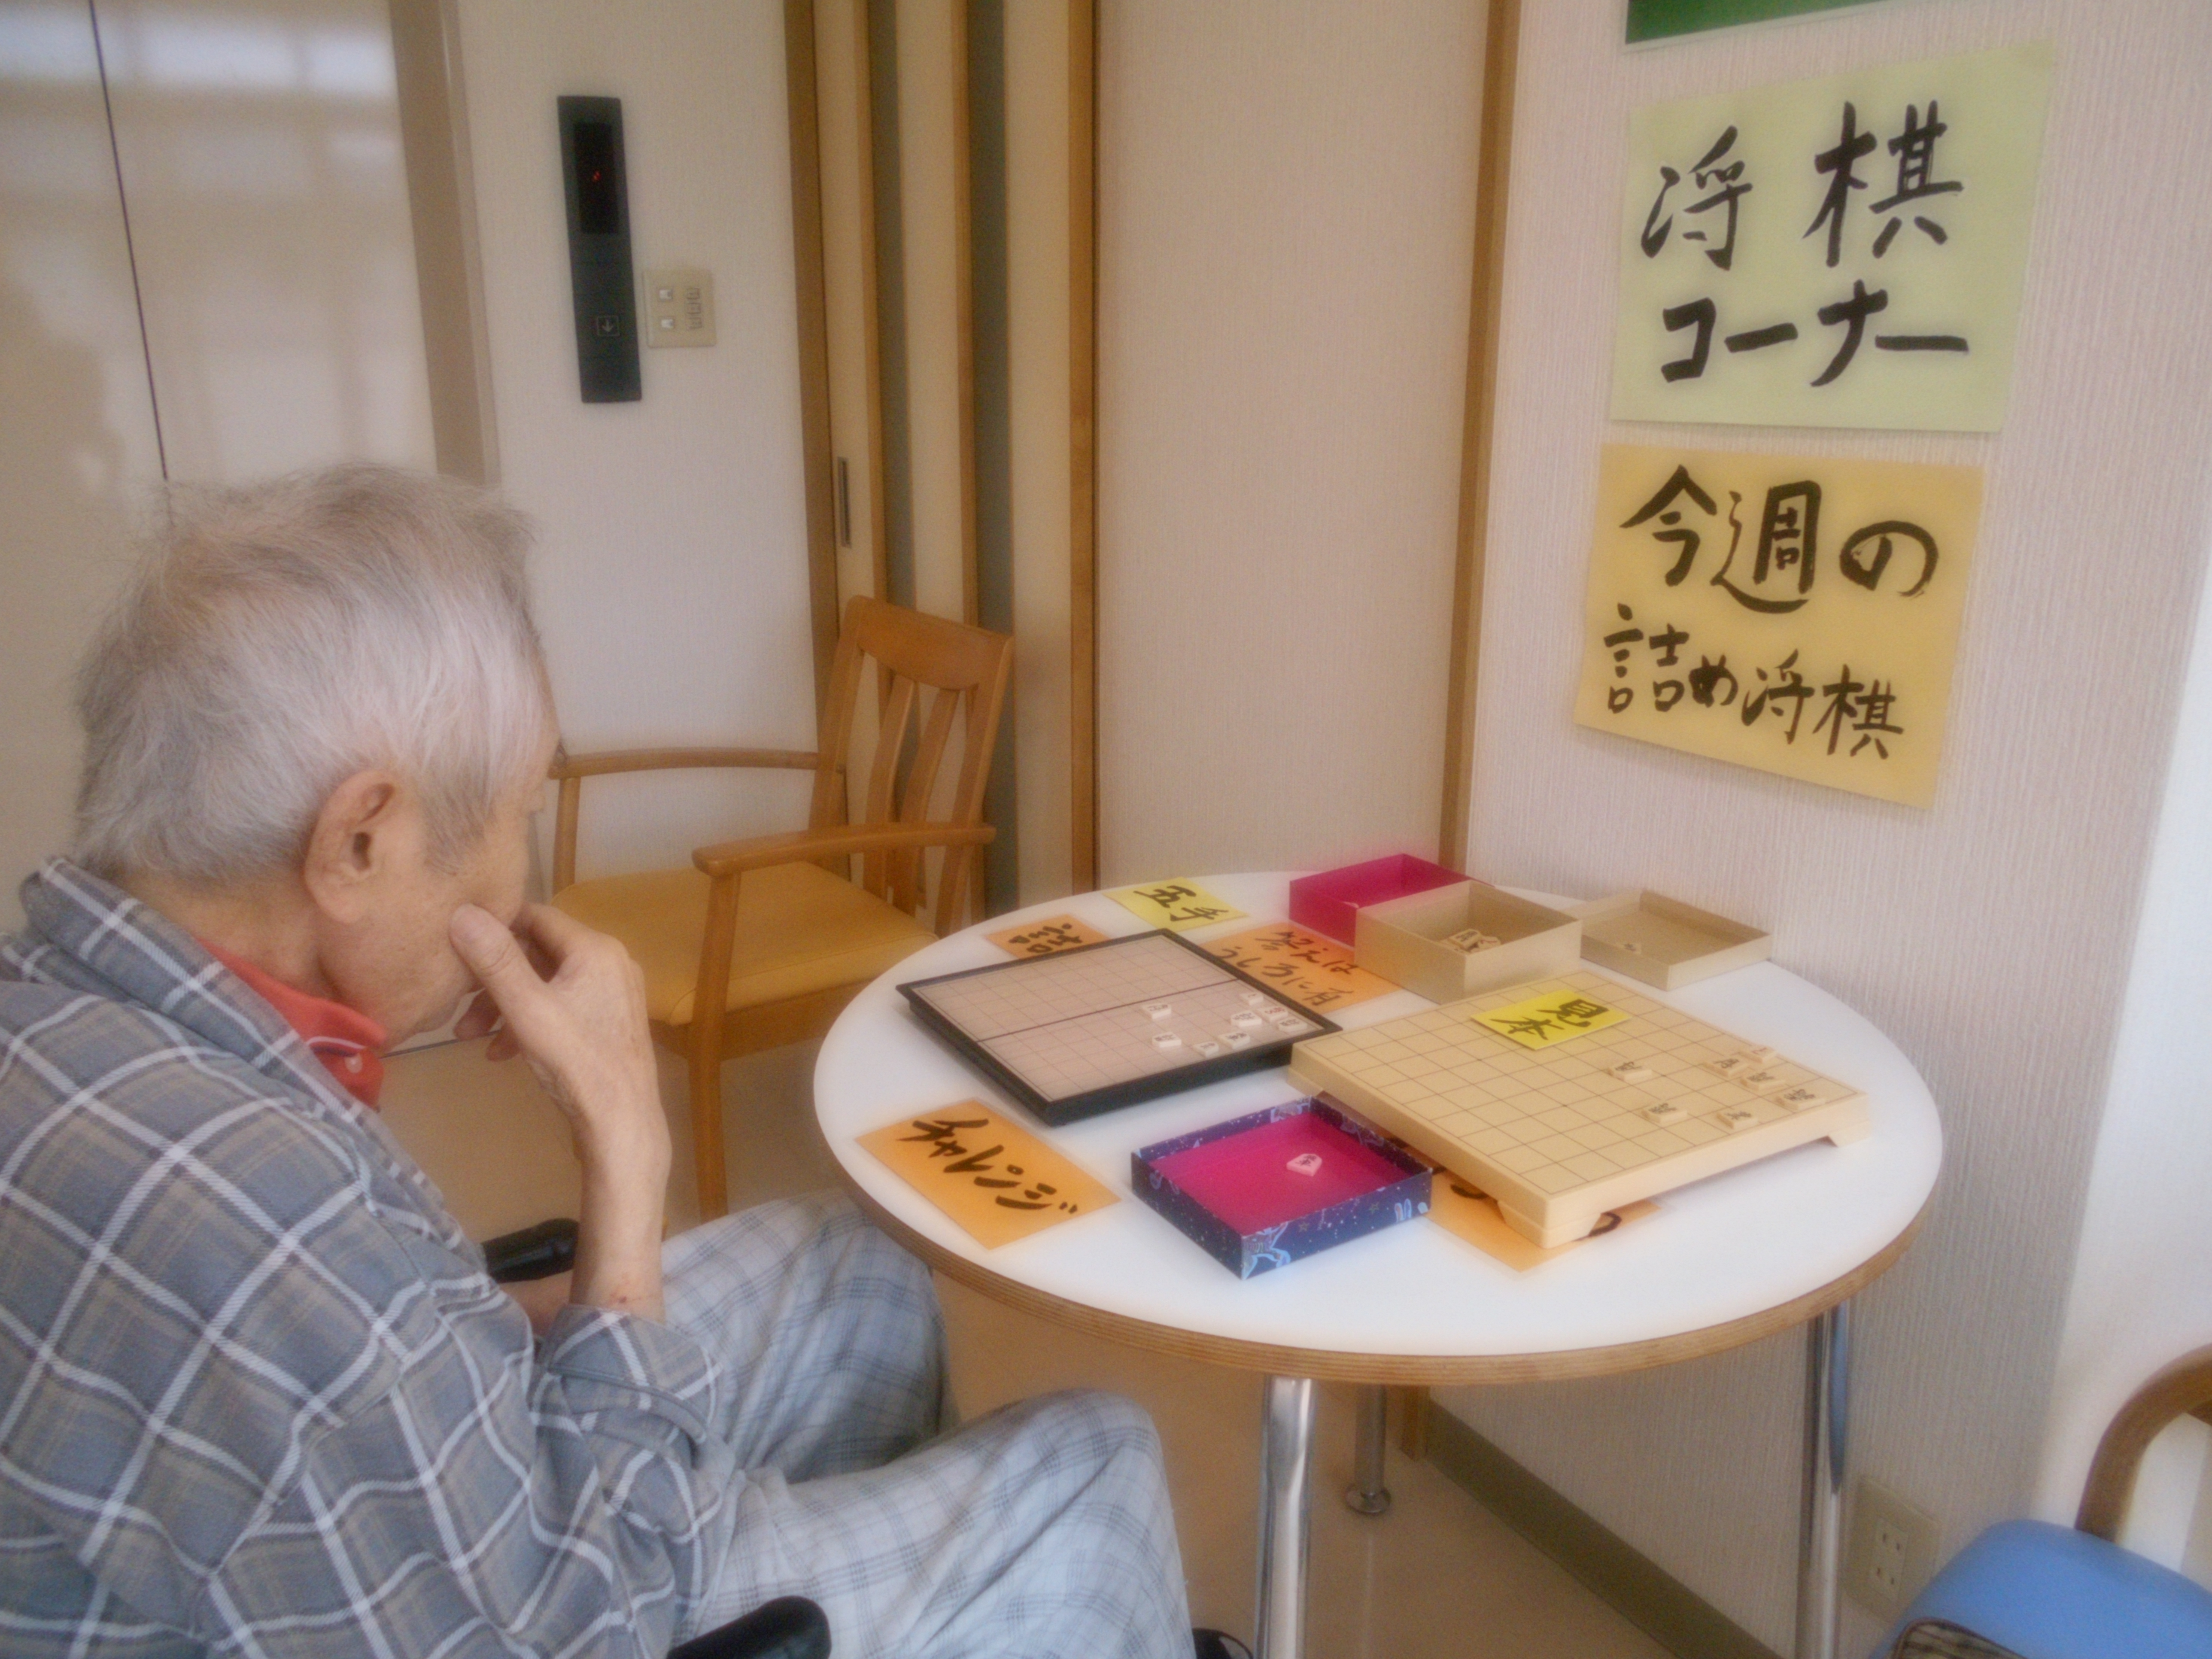 将棋
コーナー
今週の
詰め将棋
五手
詰
答えは
うしろに有
見本
チャレンジ